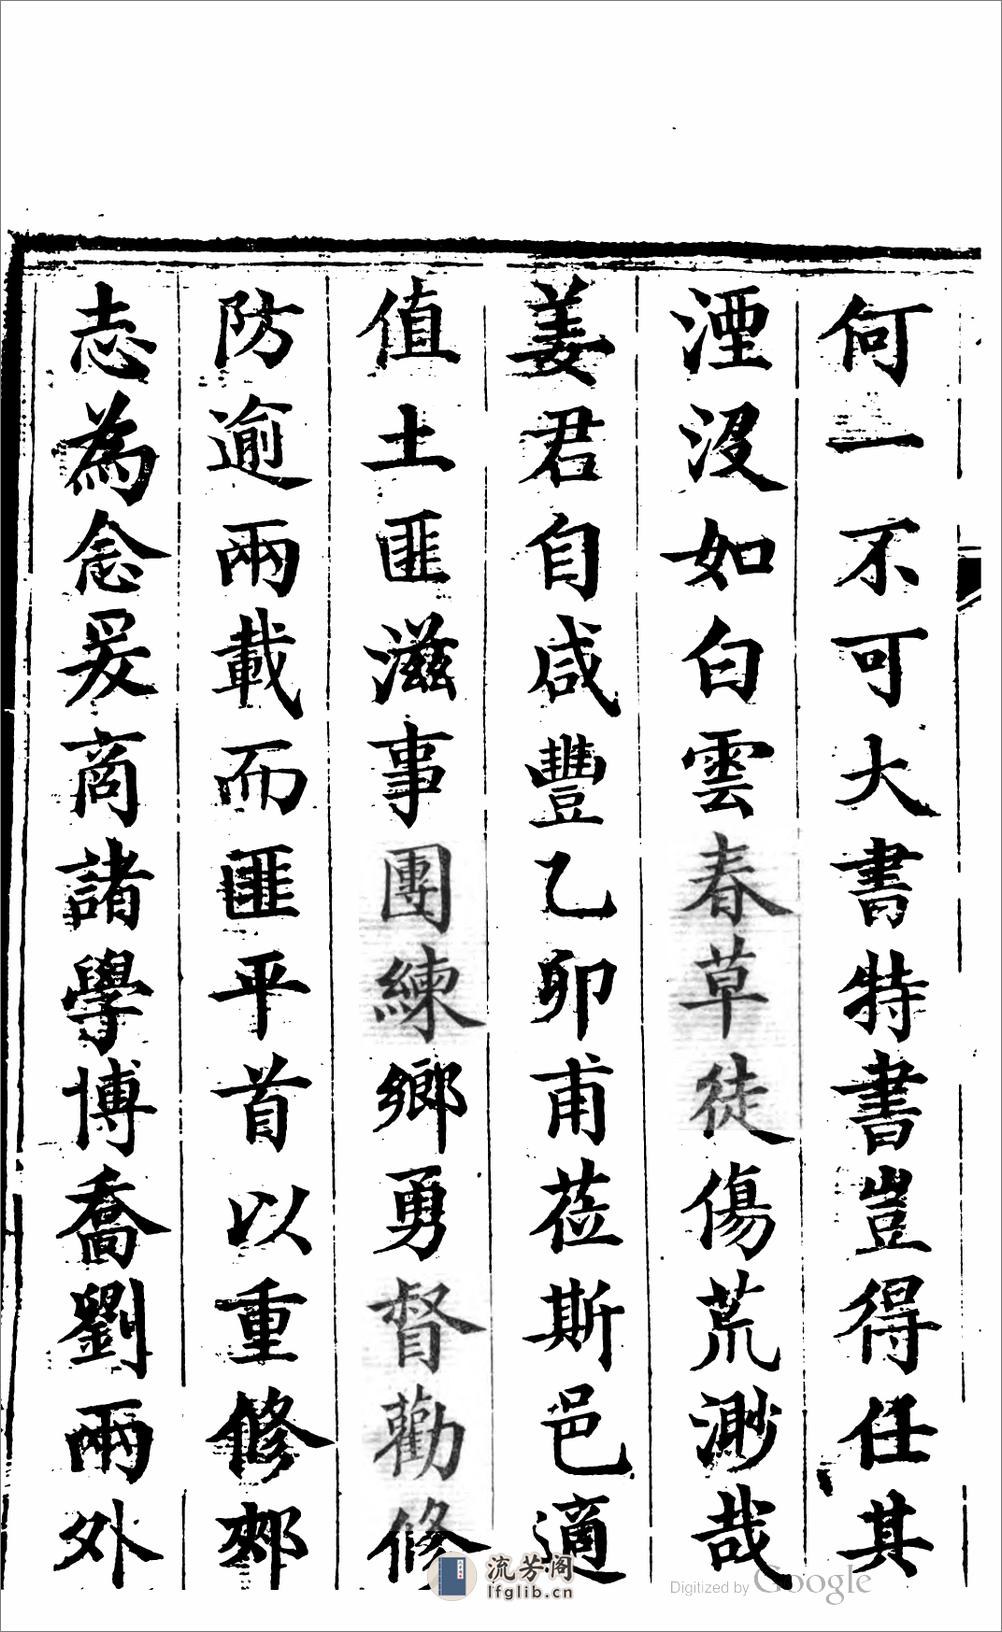 何一不可大書特書豈得任其
湮沒如白雲春草徒傷荒渺哉
姜君自咸豐乙卯甫莅斯邑適
值土匪滋事團練鄉勇督勸修
防逾兩載而匪平首以重修郟
志為念爰商諸學博喬劉兩外
流芳阁
lfglib.cn
Digitized by Google